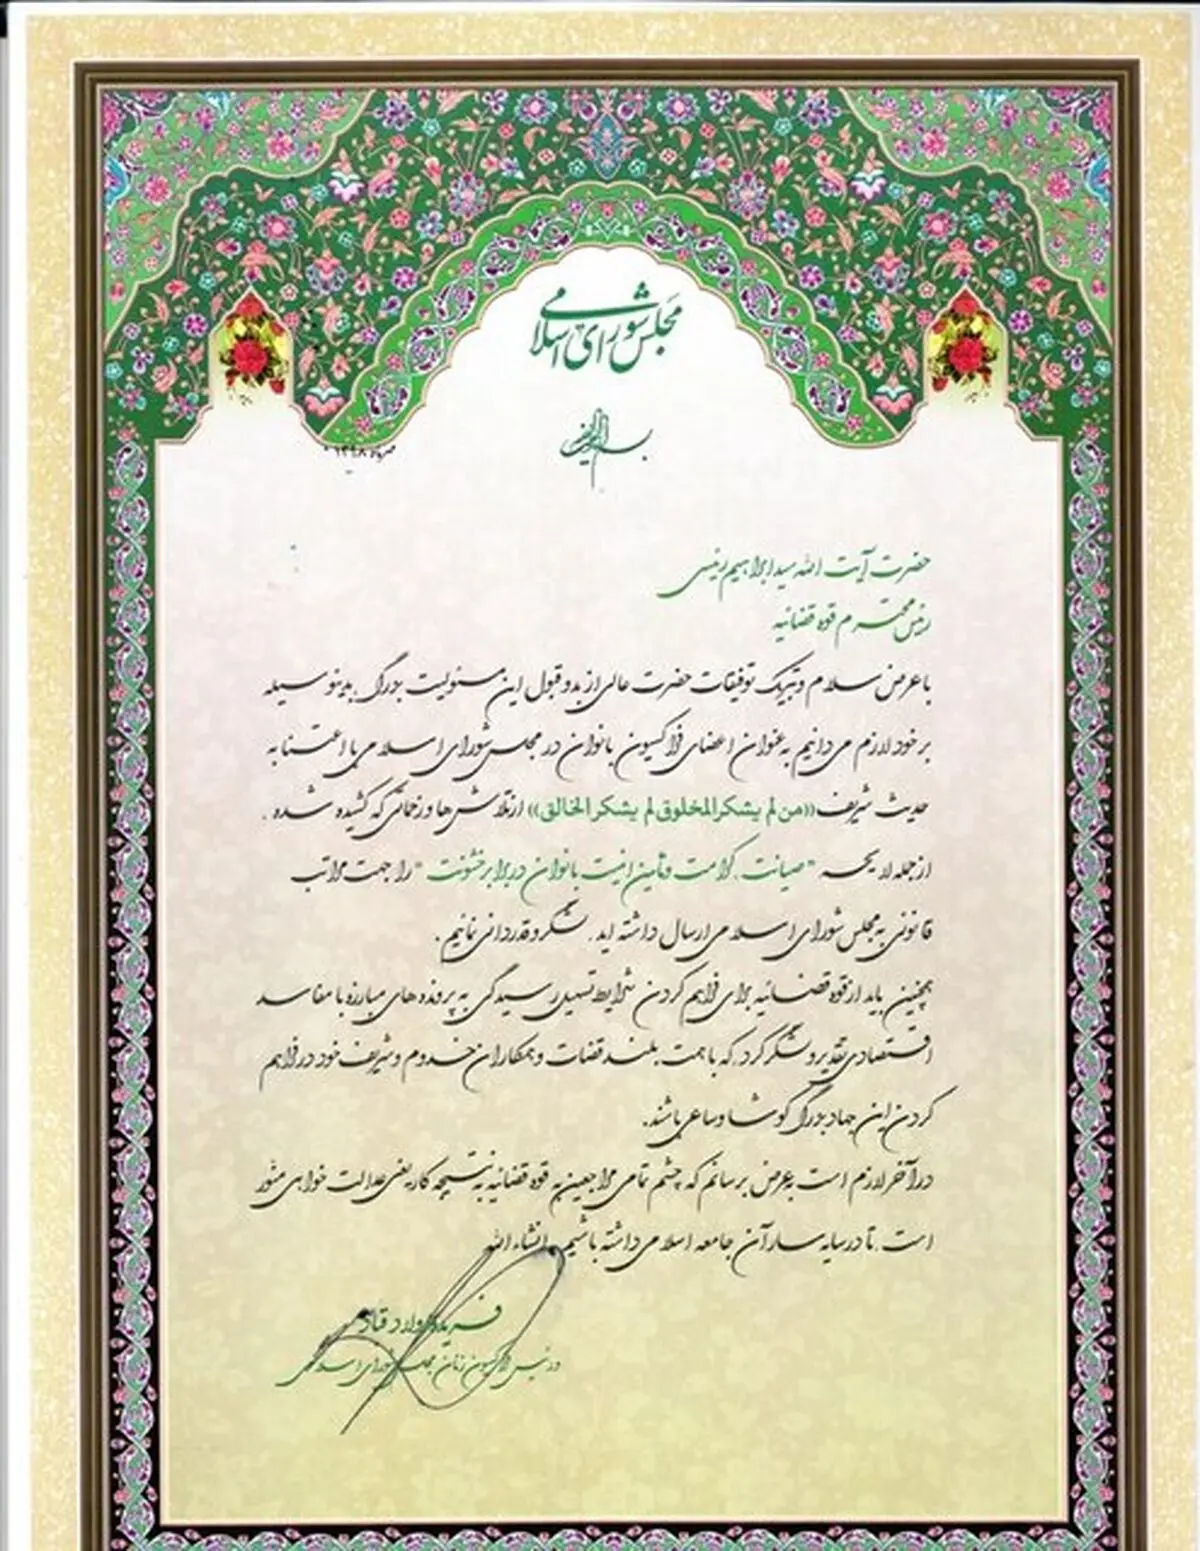 مجلس شورای اسلامی
بسم الله الرحمن الرحیم
مرداد ۱۳۹۸
حضرت آیت الله سید ابراهیم رئیسی
رئیس محترم قوه قضائیه
با عرض سلام و تبریک توفیقات حضرت عالی از بدو قبول این مسئولیت بزرگ، بدینوسیله
بر خود لازم می دانیم به عنوان اعضای فراکسیون بانوان در مجلس شورای اسلامی با اعتنا به
حدیث شریف «من لم یشکر المخلوق لم یشکر الخالق» از تلاش ها و زحماتی که کشیده شده،
از جمله لایحه "صیانت، کرامت و تأمین امنیت بانوان در برابر خشونت" را جهت مراتب
قانونی به مجلس شورای اسلامی ارسال داشته اید، تشکر و قدردانی نمائیم.
همچنین باید از قوه قضائیه برای فراهم کردن شرایط تسهیل رسیدگی به پرونده های مبارزه با مفاسد
اقتصادی تقدیر و تشکر کرد، که با همت بلند قضات و همکاران خدوم و شریف خود در فراهم
کردن این جهاد بزرگ کوشا و ساعی باشند.
در آخر لازم است به عرض برسانم که چشم تمامی مراجعین به قوه قضائیه به نتیجه کار یعنی عدالت خواهی منور
است، تا در سایه سار آن جامعه اسلامی داشته باشیم. انشاء الله
فریده اولاد قباد
رئیس فراکسیون زنان مجلس شورای اسلامی